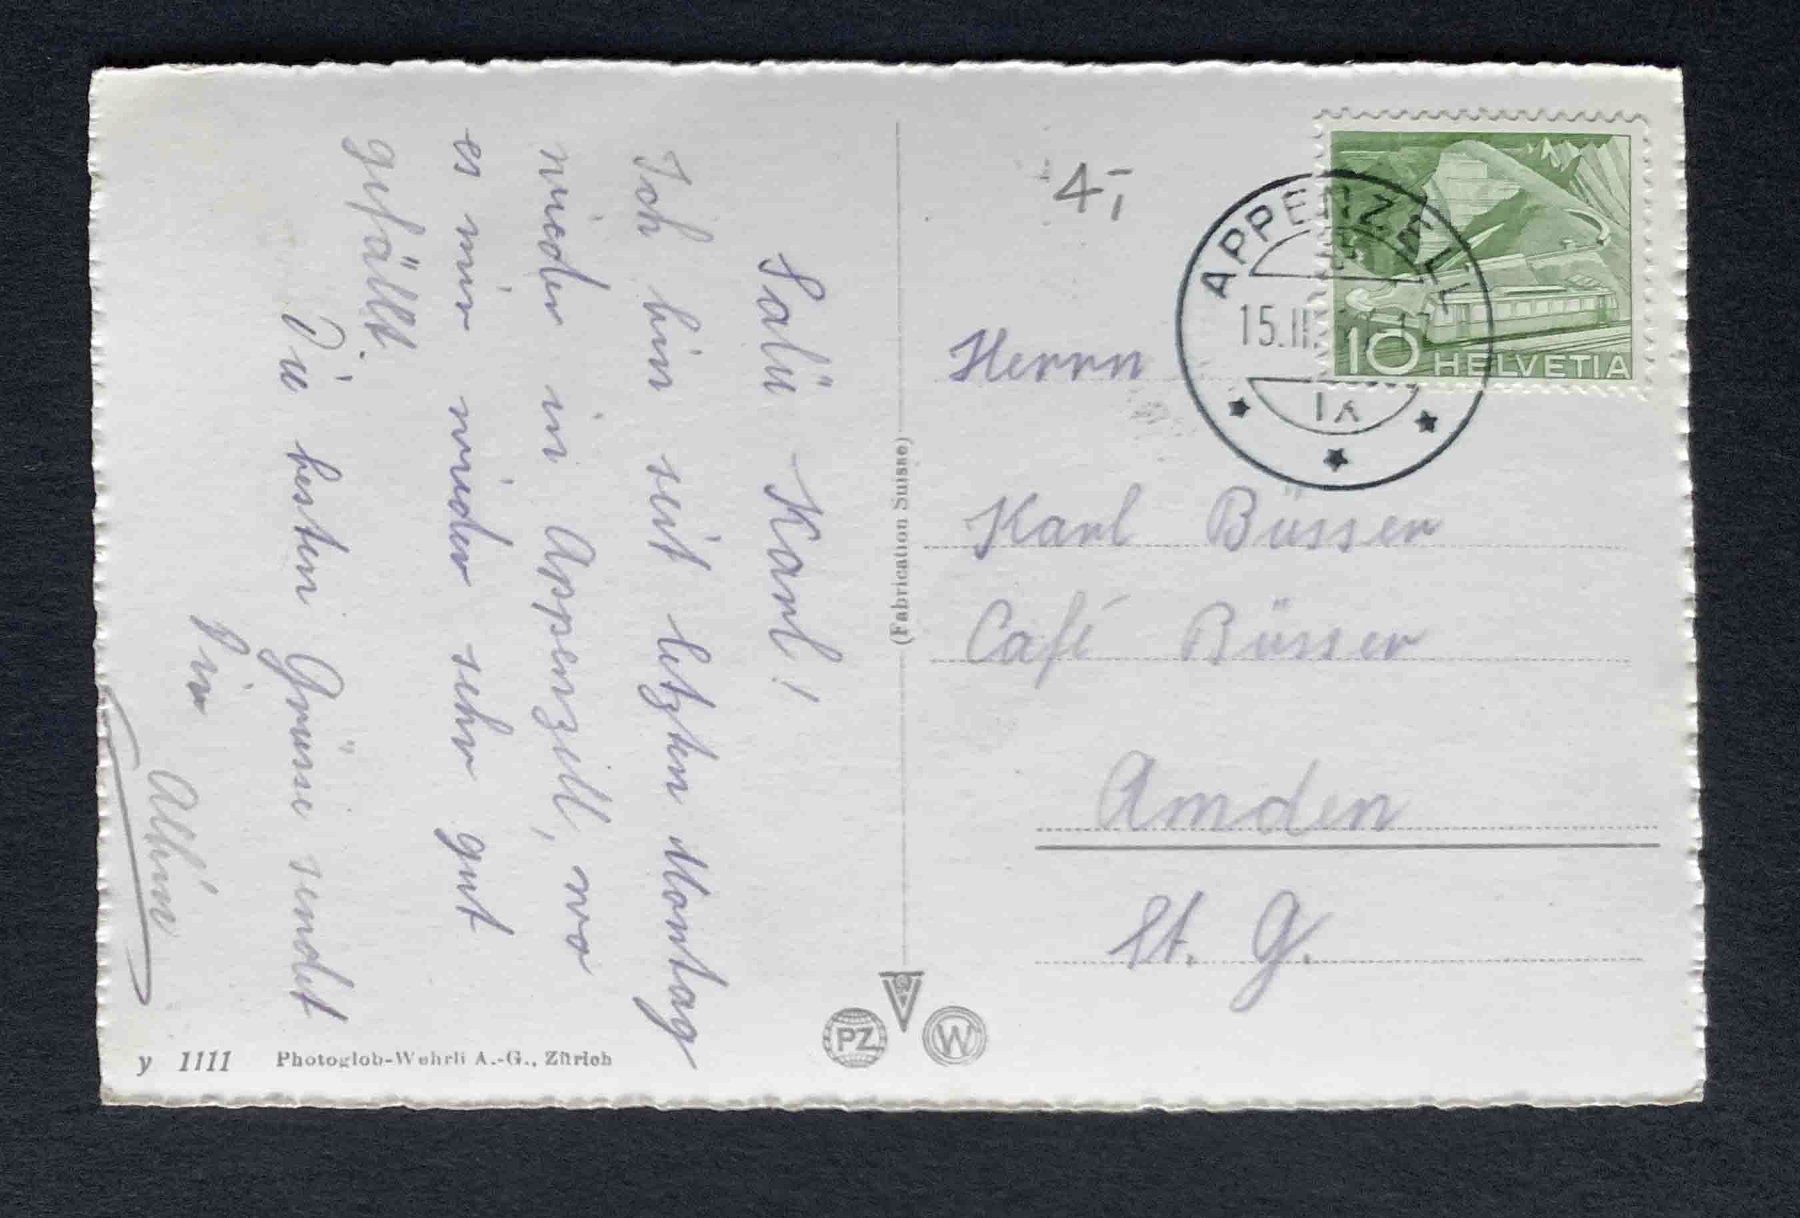 Salü Karl!
Ich bin seit letzten Montag
wieder in Appenzell, wo
es mir wieder sehr gut
gefällt.
Die besten Grüsse sendet
Dir Albin
(Fabrication Suisse)
4.-
APPENZELL
15.II
IX
10 HELVETIA
Herrn
Karl Büsser
Café Büsser
Amden
St. G.
PZ
W
y 1111 Photoglob-Wehrli A.-G., Zürich